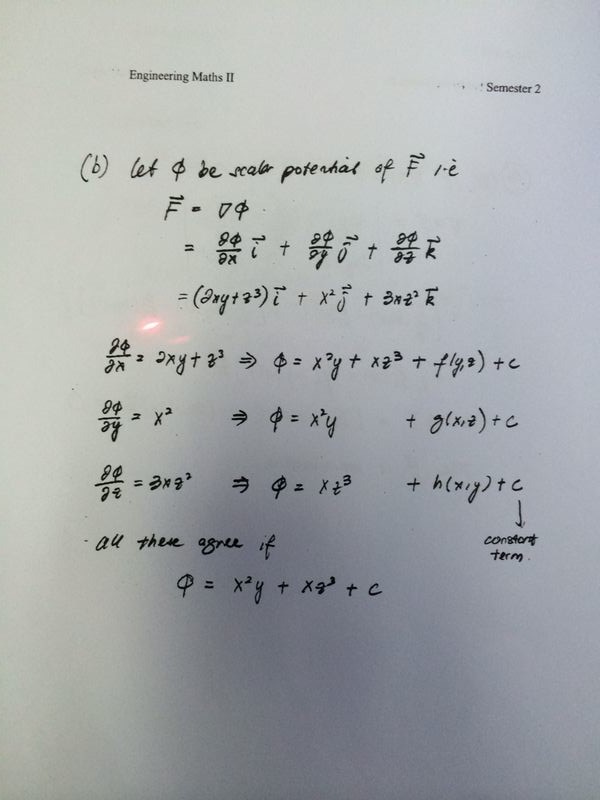 Engineering Maths II
Semester 2
(b) let ϕ be scalar potential of F⃗ i.e
F⃗ = ∇ϕ.
= ∂ϕ/∂x i⃗ + ∂ϕ/∂y j⃗ + ∂ϕ/∂z k⃗
= (2xy+z³) i⃗ + x² j⃗ + 3xz² k⃗
∂ϕ/∂x = 2xy + z³ ⇒ ϕ = x²y + xz³ + f(y,z) + c
∂ϕ/∂y = x² ⇒ ϕ = x²y + g(x,z) + c
∂ϕ/∂z = 3xz² ⇒ ϕ = xz³ + h(x,y) + c
↓
constant
term.
all these agree if
ϕ = x²y + xz³ + c